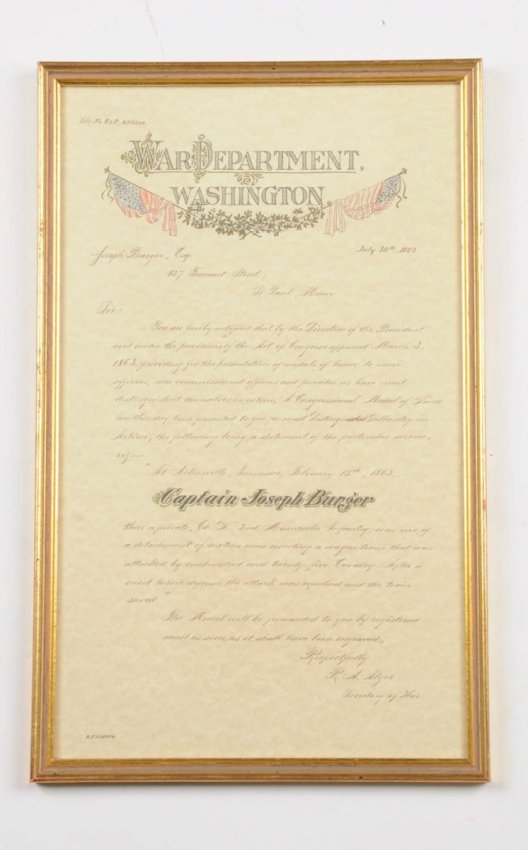 WAR DEPARTMENT.
WASHINGTON
Joseph Burger, Esq. July 30th, 1863
Street
St Paul, Minn
Sir:-
You are hereby notified that by the Direction of the President
and under the provisions of the Act of Congress approved March 3,
1863, providing for the presentation of medals of honor to such
officers, non commissioned officers and privates as have most
distinguished themselves in action, A Congressional Medal of Honor
has this day been presented to you for most Distinguished Gallantry in
Action, the following being a statement of the particular service,
viz:-
"At Nolensville, Tennessee, February 15th, 1863.
Captain Joseph Burger
then a private, Co. F. 2nd Minnesota Infantry, was one of
a detachment of sixteen men a wagon train that was
attacked by one hundred and twenty-five Cavalry. After a
most heroic defense the attack was repulsed and the train
saved."
The Medal will be forwarded to you by registered
mail as soon as it shall have been engraved.
Respectfully
R. A.
Secretary of War